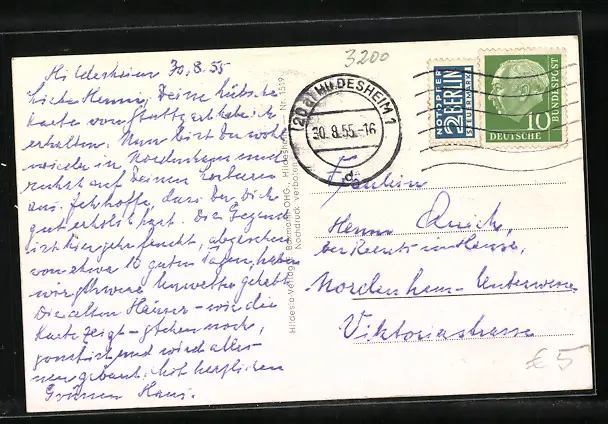 Hildesheim 30.8.55
Deine hübsche
Karte vom
erhalten. Nun bist Du wohl
wieder in Nordenham und
ruhst auf Deinen Lorbeeren
aus. Ich hoffe, dass Du Dich
gut erholt hast. Die Gegend
ist hier sehr feucht, abgesehen
von etwa 10 guten Tagen, haben
wir schwere Unwetter gehabt.
Die alten Häuser – wie die
Karte zeigt – stehen noch,
sonst ist und wird alles
neu gebaut. Mit herzlichen
Grüssen Hans.
Hildesia-Verlag G. Baxmann OHG., Hildesheim Nr. 1519
Nachdruck verboten
3200
(20a) HILDESHEIM 1
30.8.55-16
d
NOTOPFER
2 BERLIN
STEUERMARKE
10
DEUTSCHE
BUNDESPOST
Fräulein
Henny
Nordenham-Unterweser
Viktoriastrasse
£5